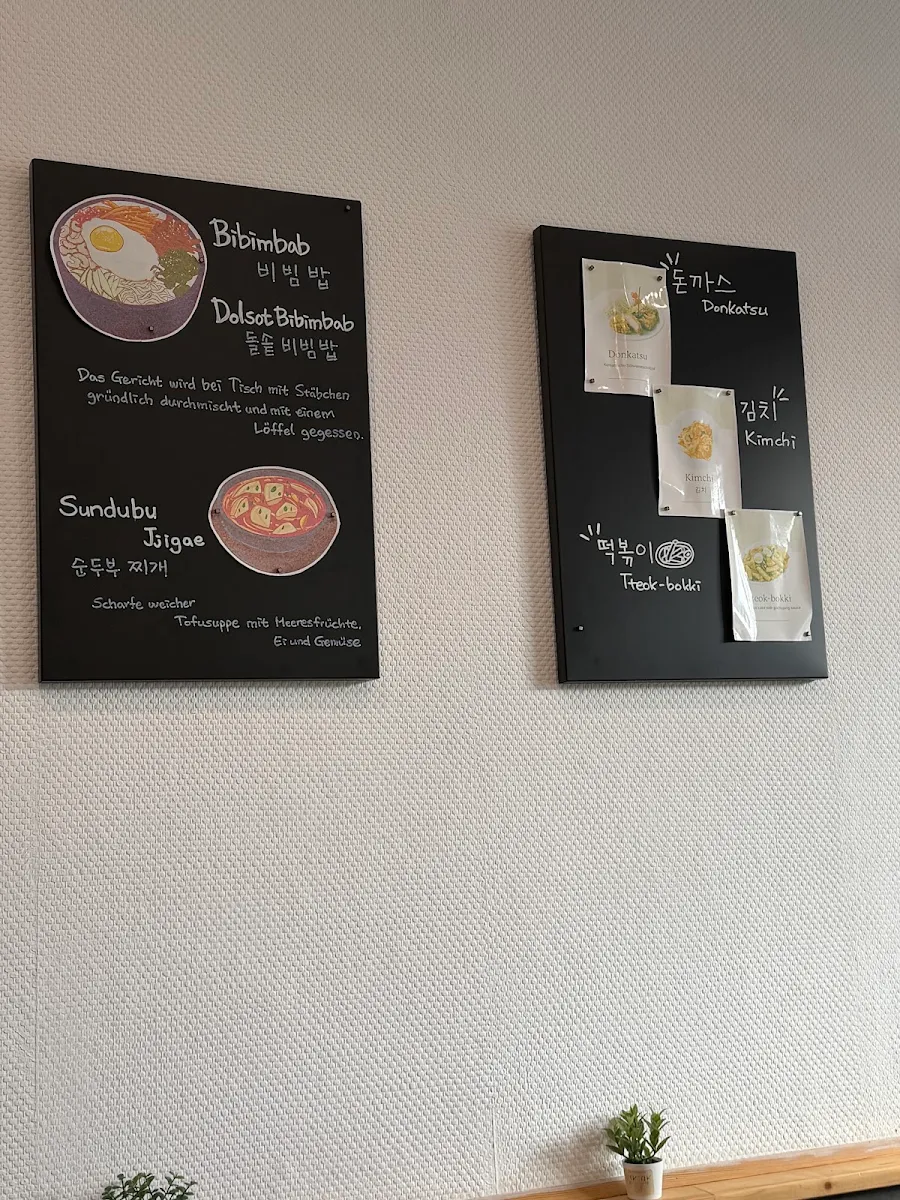 Bibimbab
비빔밥
Dolsot Bibimbab
돌솥 비빔밥
Das Gericht wird bei Tisch mit Stäbchen
gründlich durchmischt und mit einem
Löffel gegessen.
Sundubu
Jjigae
순두부 찌개
Scharfe weicher
Tofusuppe mit Meeresfrüchte,
Ei und Gemüse
돈까스
Donkatsu
Donkatsu
김치
Kimchi
Kimchi
김치
떡볶이
Tteok-bokki
teok-bokki